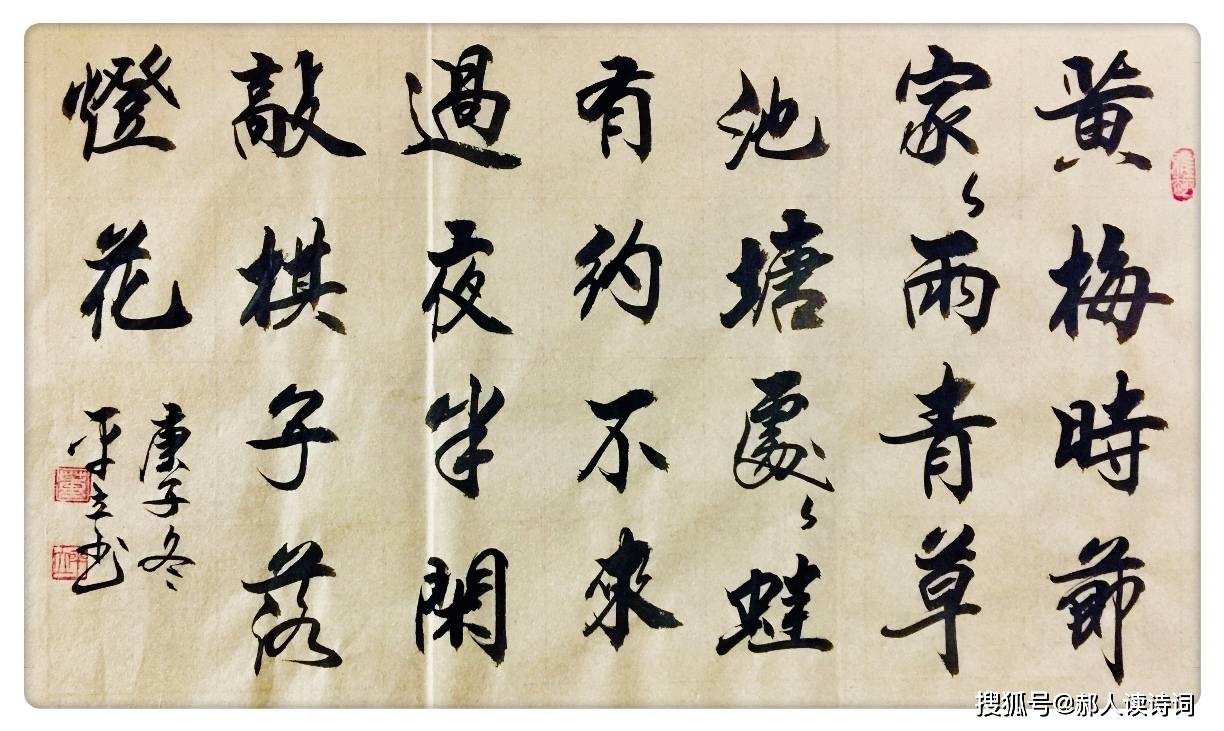 黃梅時節
家〻雨青草
池塘處〻蛙
有約不來
過夜半閑
敲棋子落
燈花
庚子冬
平立书
搜狐号@郝人读诗词